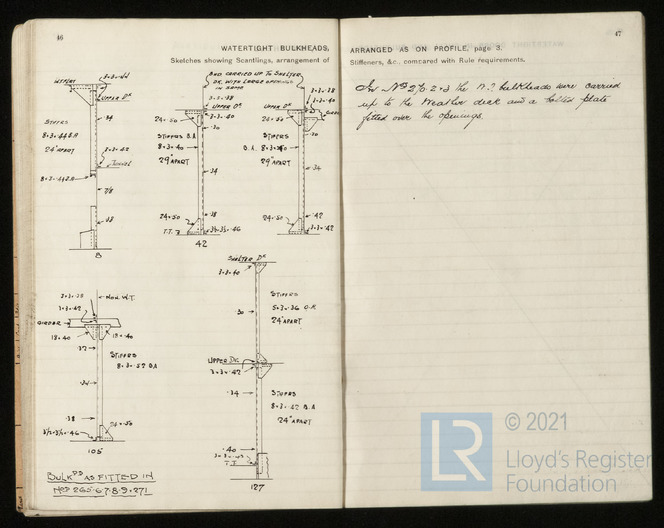 46
WATERTIGHT BULKHEADS,
Sketches showing Scantlings, arrangement of
BHD. CARRIED UP TO SHELTER
DK. WITH LARGE OPENINGS
IN SAME
3×3×.44
UPPER DK
.34
STIFFRS
8×3×.44 B.A
24" APART
3×3×.42
TUNNEL
8×3×.44 B.A
8
3×3×.38
UPPER DK
3×3×.40
24×.50
.30
STIFFRS B.A
8×3×.40
29" APART
.34
24×.50
.38
T.T.
3½×3½×.46
42
3×3×.38
3×3×.40
UPPER DK
24×.50
.30
STIFFRS
B.A. 8×3×.40
29" APART
.34
24×.50
.42
3×3×.42
3×3×.42
NON W.T.
GIRDER
18×.40
18×.40
.32
STIFFRS
8×3×.42 B.A
.34
.38
3½×3½×.46
24×.50
105
SHELTER DK
3×3×.40
.30
STIFFRS
24" APART
UPPER DK.
3×3×.42
.34
STIFFRS
8×3×.42 B.A
24" APART
.40
T.T.
127
BULKDS AS FITTED IN
NOS 265·6·7·8·9·271
47
ARRANGED AS ON PROFILE, page 3.
Stiffeners, &c., compared with Rule requirements.
bulkheads were carried
up to the Weather deck and a bolted plate
fitted over the openings.
LR
© 2021
Lloyd's Register
Foundation